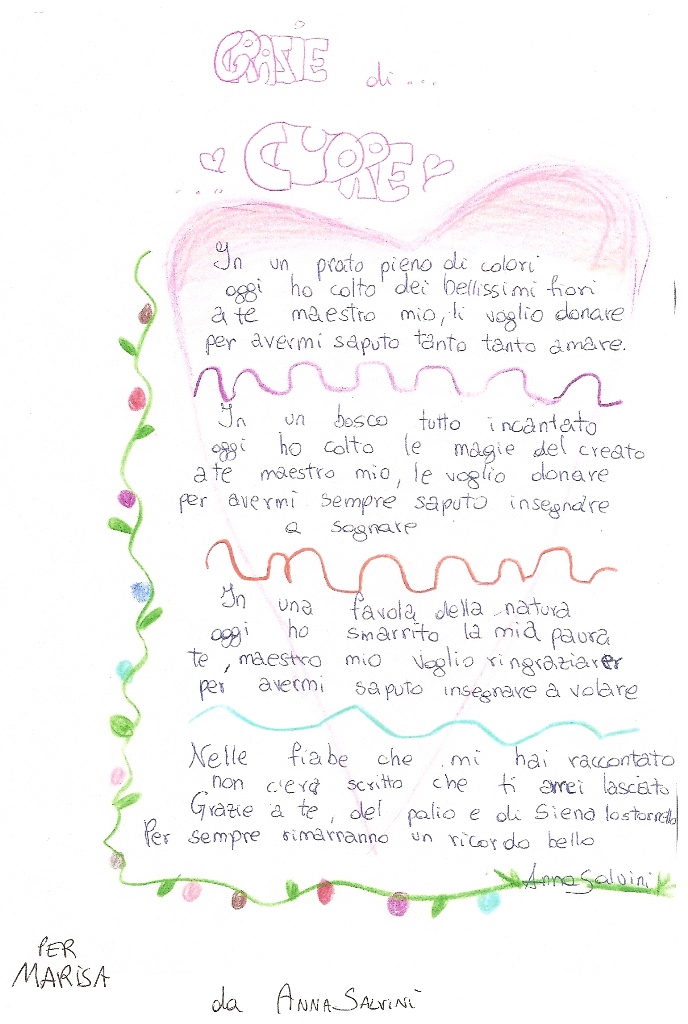 GRAZIE di...
... CUORE
In un prato pieno di colori
oggi ho colto dei bellissimi fiori
a te maestro mio, li voglio donare
per avermi saputo tanto tanto amare.
In un bosco tutto incantato
oggi ho colto le magie del creato
a te maestro mio, le voglio donare
per avermi sempre saputo insegnare
a sognare
In una favola della natura
oggi ho smarrito la mia paura
te, maestro mio voglio ringraziarer
per avermi saputo insegnare a volare
Nelle fiabe che mi hai raccontato
non c'era scritto che ti avrei lasciato
Grazie a te, del palio e di Siena lo stornello
Per sempre rimarranno un ricordo bello
Anna Salvini
PER
MARISA
da ANNA SALVINI